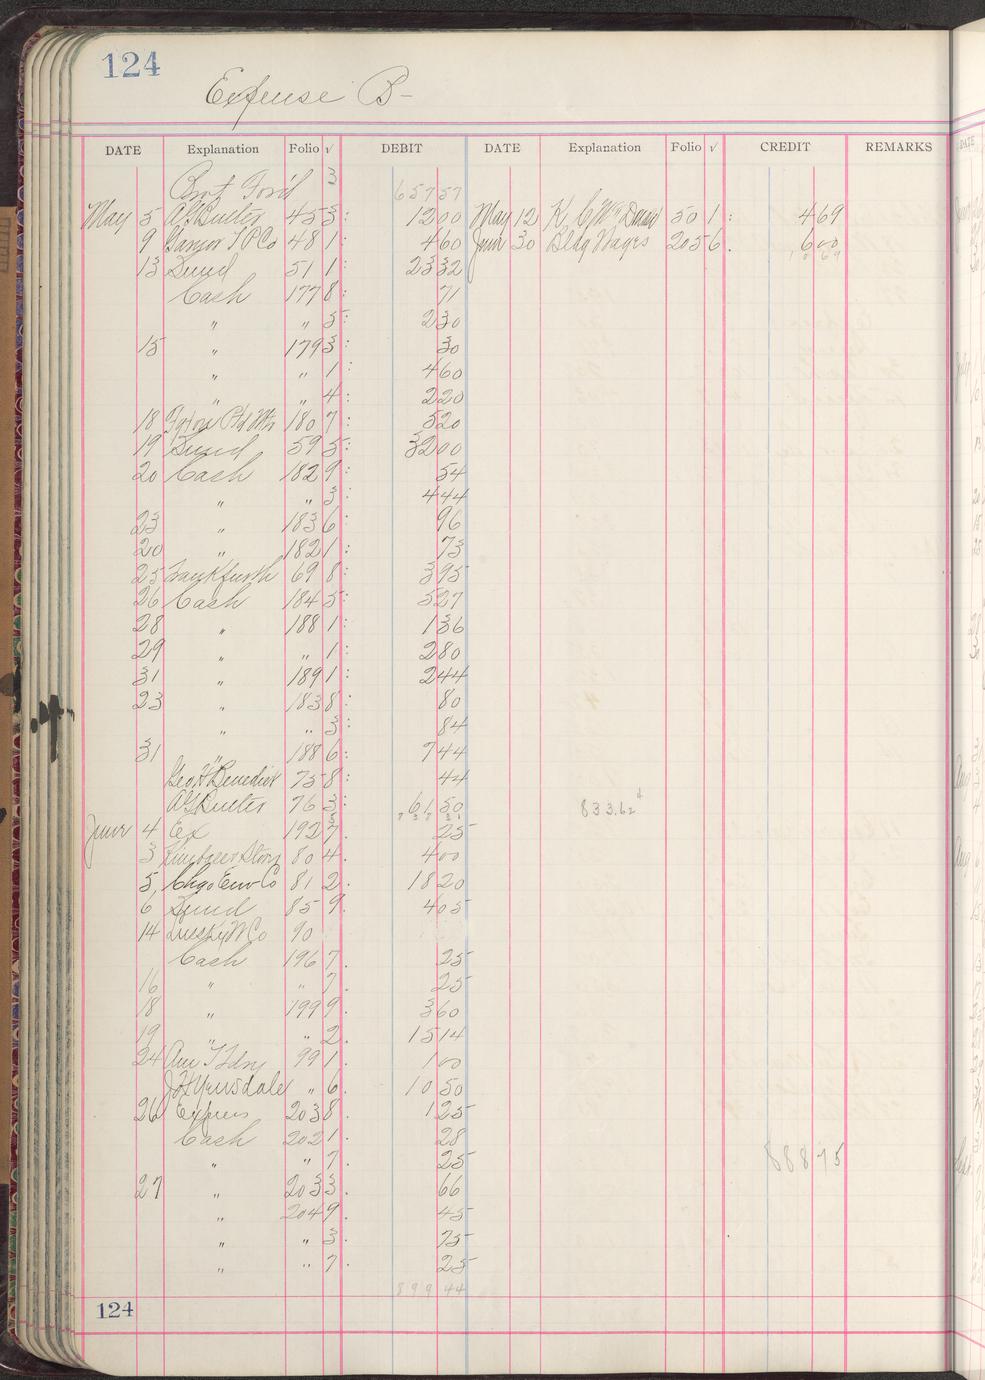 124
Expense B-
DATE Explanation Folio √ DEBIT DATE Explanation Folio √ CREDIT REMARKS
Brot Ford 3 657 57
May 5 453: 12 00 May 12 K C 501: 4 69
9 481: 4 60 June 30 Bldg Wages 2056. 6 00
13 Sund 511: 23 32 10 69
Cash 1778: 71
" " 5: 2 30
15 " 1793: 30
" " 1: 4 60
" " 4: 2 20
18 1807: 5 20
19 Sund 595: 32 00
20 Cash 1829: 54
" " 3: 4 44
23 " 1836: 96
20 " 1821: 73
25 Frankfurth 698: 3 95
26 Cash 1845: 5 27
28 " 1881: 1 36
29 " " 1: 2 80
31 " 1891: 2 44
23 " 1838: 80
" " 3: 84
31 " 1886: 7 44
Geo H Benedict 758: 44
763: 61 50 833.62
June 4 Ex 1927. 25
3 804. 4 00
5 Chgo Env Co 812. 18 20
6 Sund 859. 4 05
14 Co 90
Cash 1967. 25
16 " " 7. 25
18 " 1999. 3 60
19 " " 2. 15 14
24 Am 991. 1 00
" 6. 10 50
26 Express 2038. 1 25
Cash 2021. 28
" " 7. 25 888 75
27 " 2033. 66
" 2049. 45
" " 3. 75
" " 7. 25
899 44
124